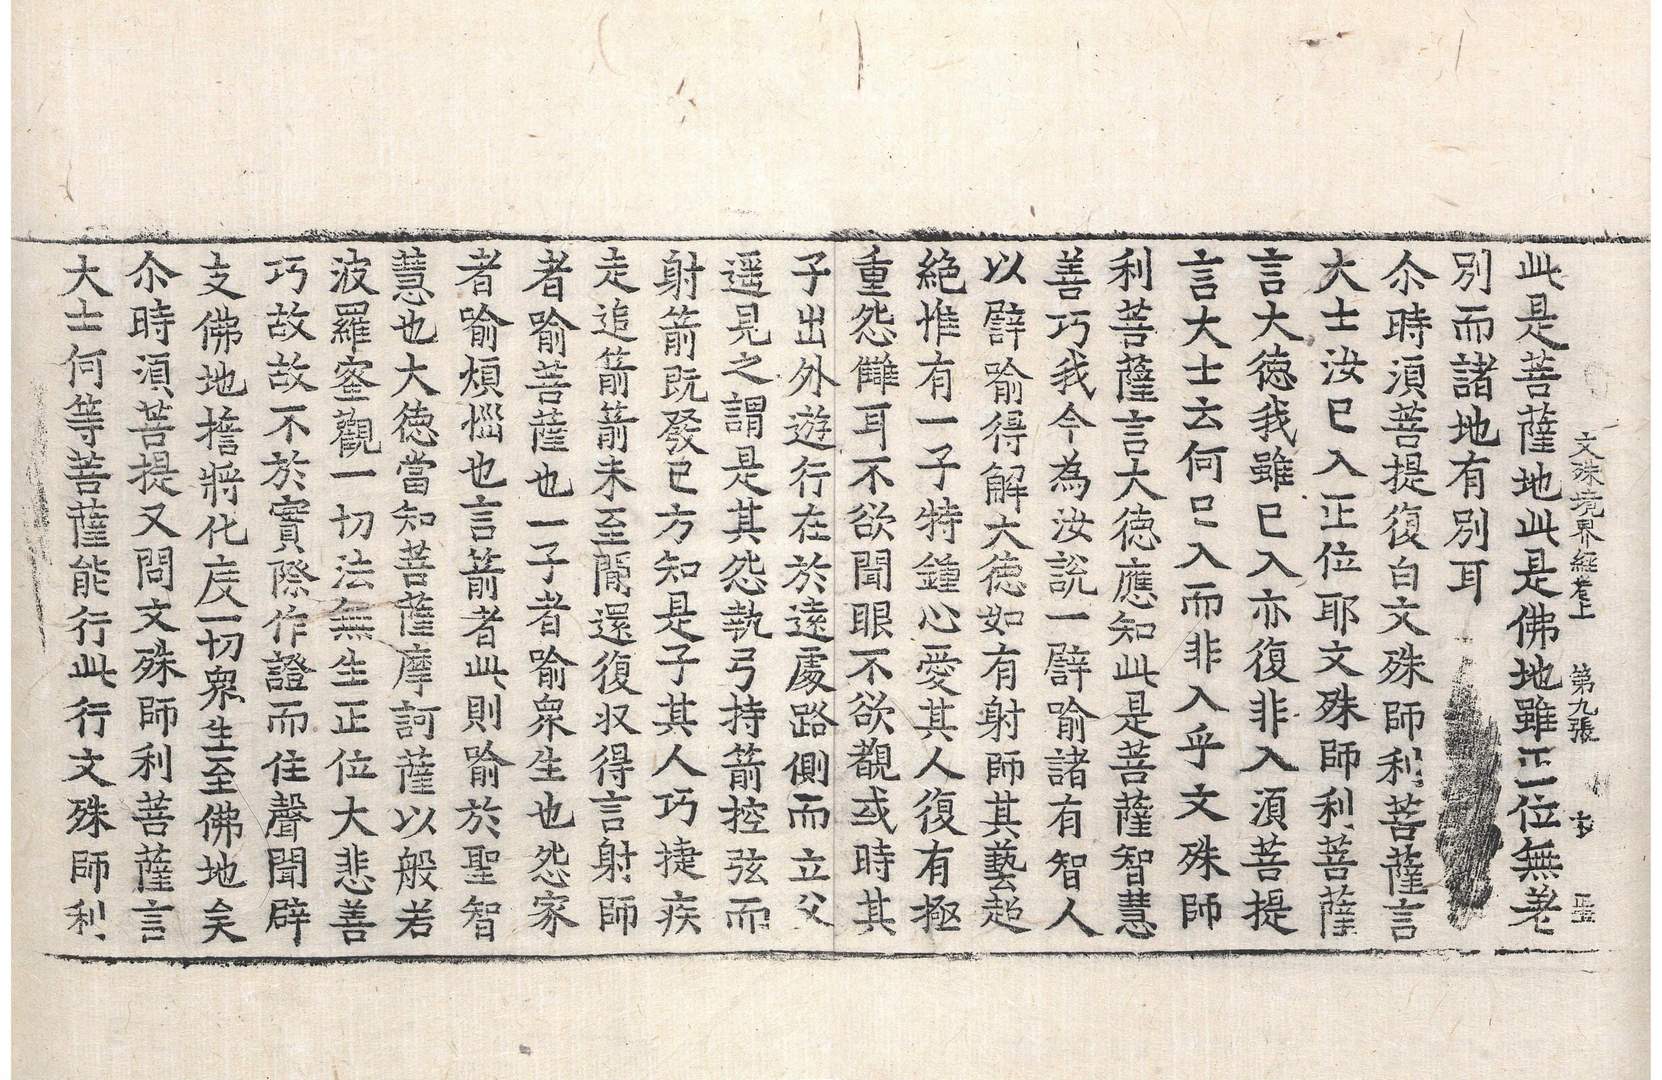 文殊境界經卷上　第九張
此是菩薩地此是佛地雖正一位無差
別而諸地有別耳
尒時湏菩提復白文殊師利菩薩言
大士汝已入正位耶文殊師利菩薩
言大德我雖已入亦復非入湏菩提
言大士云何已入而非入乎文殊師
利菩薩言大德應知此是菩薩智慧
善巧我今為汝說一譬喻諸有智人
以譬喻得解大德如有射師其藝超
絕惟有一子特鍾心愛其人復有極
重怨讎耳不欲聞眼不欲覩或時其
子出外遊行在於遠處路側而立父
遥見之謂是其怨執弓持箭控弦而
射箭既發已方知是子其人巧捷疾
走追箭箭未至間還復収得言射師
者喻菩薩也一子者喻衆生也怨家
者喻煩惱也言箭者此則喻於聖智
慧也大德當知菩薩摩訶薩以般若
波羅蜜觀一切法無生正位大悲善
巧故故不於實際作證而住聲聞辟
支佛地擔將化度一切衆生至佛地矣
尒時湏菩提又問文殊師利菩薩言
大士何等菩薩能行此行文殊師利